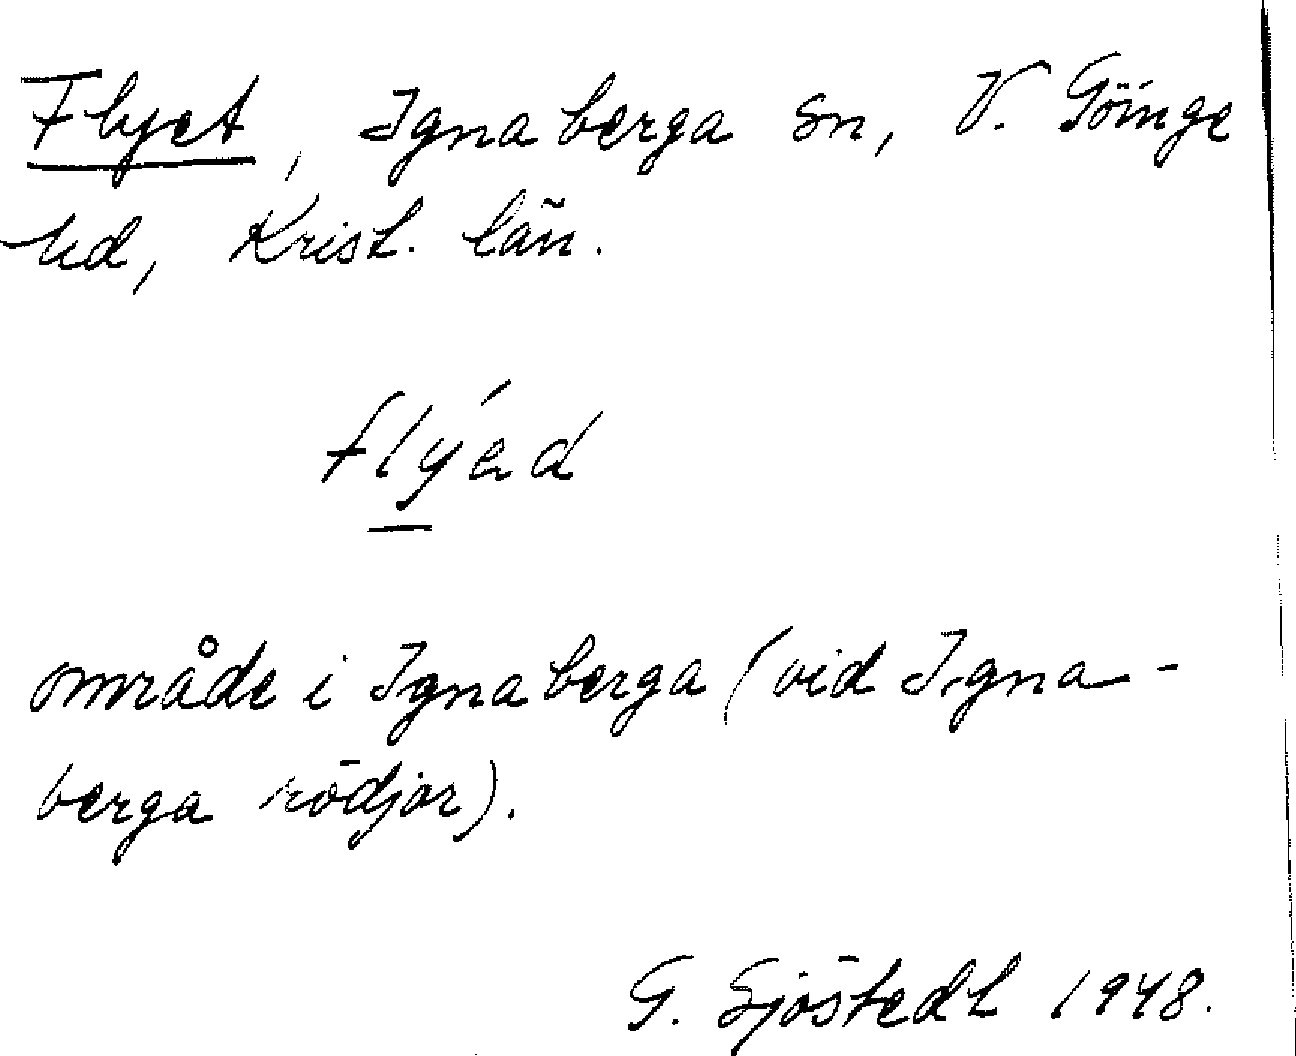 Flyet, Ignaberga sn, V. Göinge
hd, Krist. län.
flýəd
område i Ignaberga (vid Igna-
berga rödjor).
G. Sjöstedt 1948.